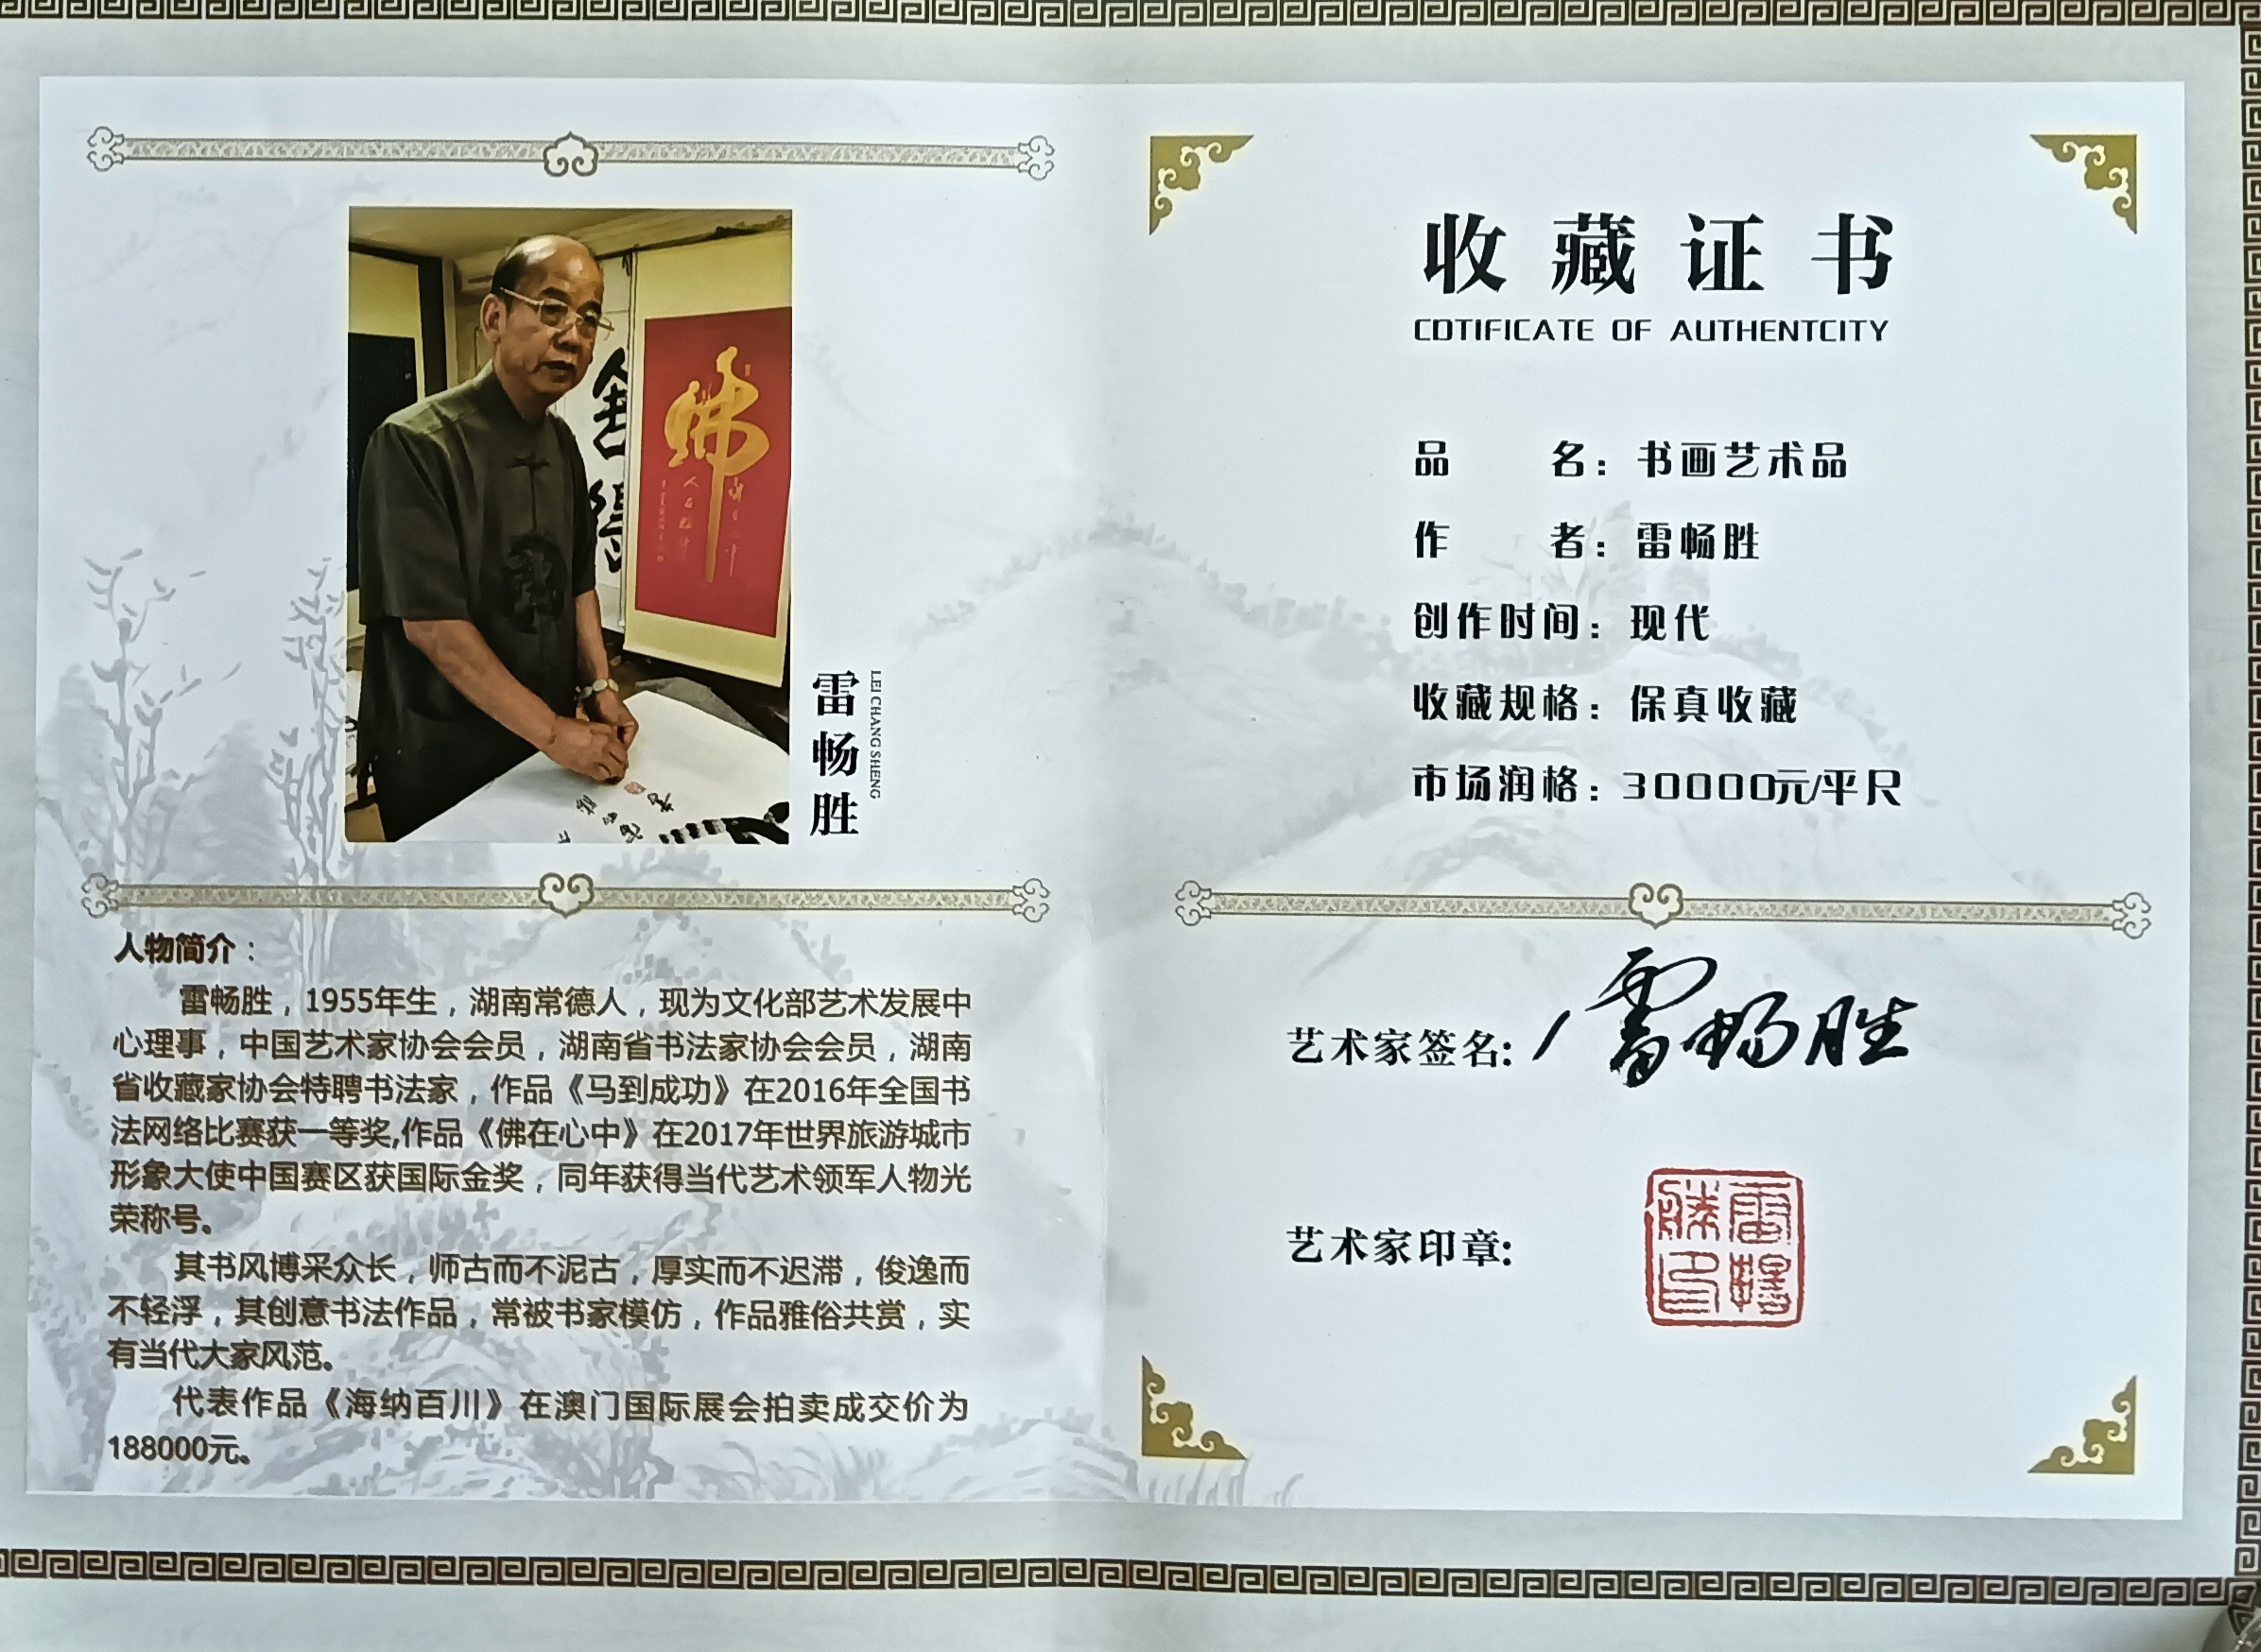 佛
雷畅胜
LEI CHANG SHENG
人物简介：
雷畅胜，1955年生，湖南常德人，现为文化部艺术发展中
心理事，中国艺术家协会会员，湖南省书法家协会会员，湖南
省收藏家协会特聘书法家，作品《马到成功》在2016年全国书
法网络比赛获一等奖,作品《佛在心中》在2017年世界旅游城市
形象大使中国赛区获国际金奖，同年获得当代艺术领军人物光
荣称号。
其书风博采众长，师古而不泥古，厚实而不迟滞，俊逸而
不轻浮，其创意书法作品，常被书家模仿，作品雅俗共赏，实
有当代大家风范。
代表作品《海纳百川》在澳门国际展会拍卖成交价为
188000元。
收藏证书
COTIFICATE OF AUTHENTCITY
品名：书画艺术品
作者：雷畅胜
创作时间：现代
收藏规格：保真收藏
市场润格：30000元/平尺
艺术家签名: 雷畅胜
艺术家印章:
雷畅胜印